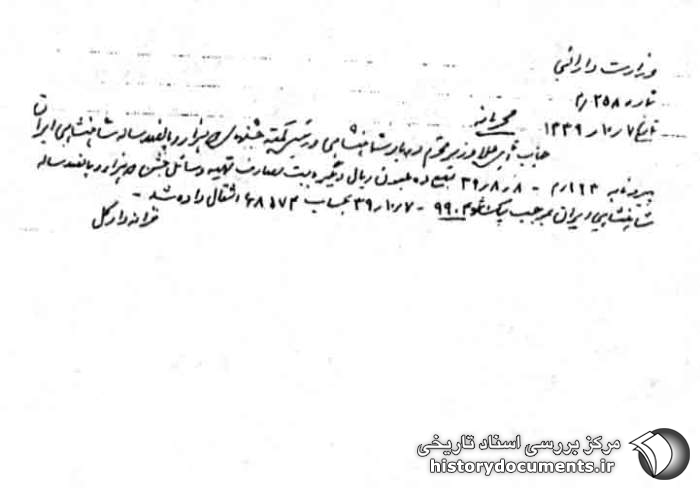 وزارت دارائی
شماره ۲۵۸/م
تاریخ ۷ر۱۰ر۱۳۳۹ محرمانه
جناب آقای علاء وزیر محترم دربار شاهنشاهی و رئیس کمیته جشنهای دوهزار و پانصد ساله شاهنشاهی ایران
پیرو نامه ۱۲۳/م - ۸ر۸ر۳۹ مبلغ ده میلیون ریال دیگر بابت مصارف تهیه وسائل جشن دوهزار و پانصد ساله
شاهنشاهی ایران بموجب چک شماره ۹۹۰۲ - ۷ر۱۰ر۳۹ بحساب ۶۸۱۷۳ انتقال داده شد -
خزانه‌دار کل
مرکز بررسی اسناد تاریخی
historydocuments.ir